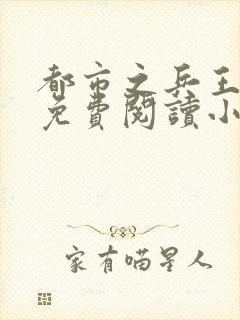 都市之兵王
免費閱讀小
家有喵星人